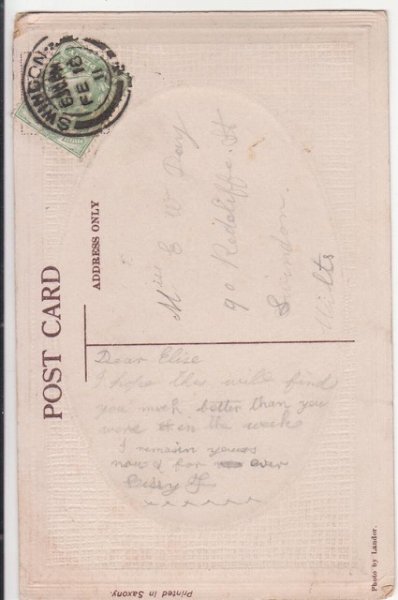 SWINDON
FE 10
11
POST CARD
ADDRESS ONLY
Miss E W Day
90 Redcliffe St
Swindon.
Wilts
Dear Elise
I hope this will find
you much better than you
were on the week
I remain yours
now & for ever
Photo by Lander.
Printed in Saxony.